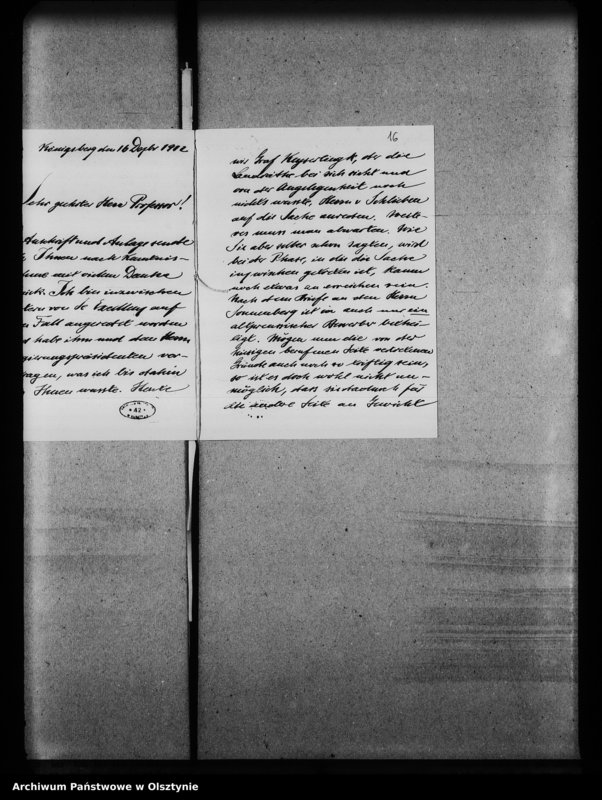 Königsberg den 16 Dezbr 1902
Sehr geehrter Herr Professor!
Zuschrift und Anlage sende
Ihnen nach Kenntnis-
nahme mit vielem Danke
zurück. Ich bin inzwischen
von Sr Excellenz auf
Fall angeredet worden
habe ihm und dem Herrn
Regierungspräsidenten vor-
was ich bis dahin
Ihnen wusste. Heute
42
16
wie Graf Keyserlingk, der die
Landräthe bei sich sieht und
von der Angelegenheit noch
nichts wusste, Herrn v Schlieben
auf die Sache anreden.
muss man abwarten. Wie
Sie aber selber schon sagten, wird
bei der Phase, in die die Sache
inzwischen getreten ist, kaum
noch etwas zu erreichen sein.
Nach dem Briefe an den Herrn
Sonnenberg ist ja auch nur ein
altpreussischer Bewerber bethei-
ligt. Mögen nun die von der
hiesigen berufenen Seite
Gründe auch noch so triftig sein,
so ist es doch wohl nicht un-
möglich, dass sie dadurch für
die andere Seite an Gewicht
Archiwum Państwowe w Olsztynie